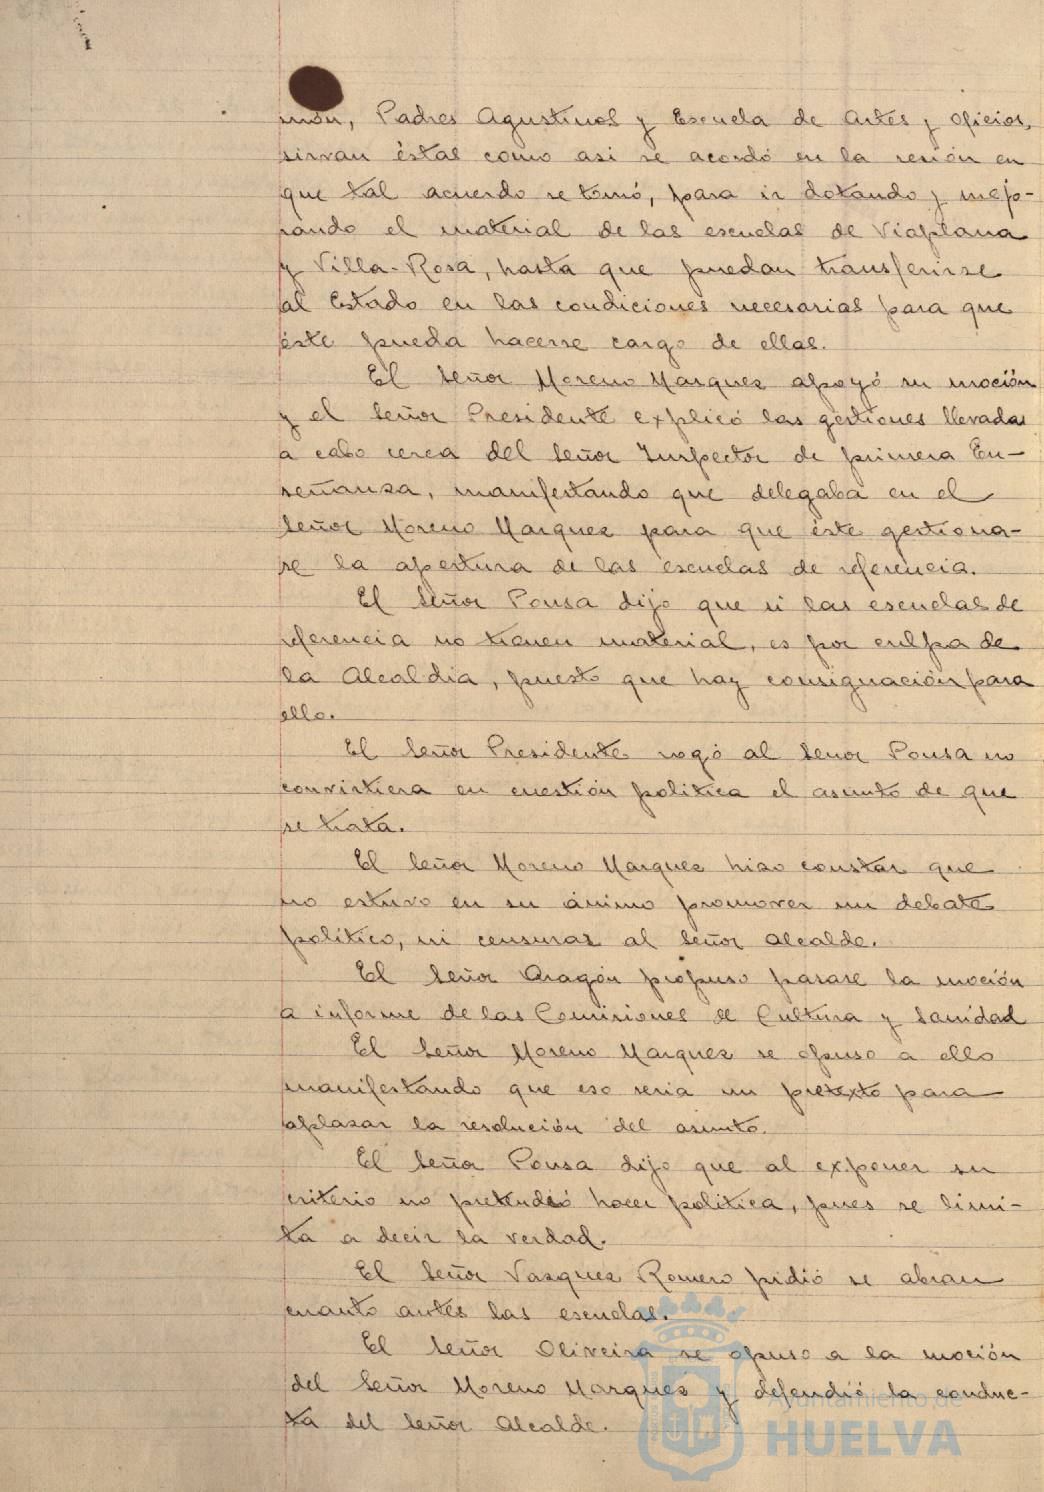 món, Padres Agustinos y Escuela de Artes y Oficios,
sirvan éstas como asi se acordó en la sesión en
que tal acuerdo se tomó, para ir dotando y mejo-
rando el material de las escuelas de Viaplana
y Villa-Rosa, hasta que puedan transferirse
al Estado en las condiciones necesarias para que
éste pueda hacerse cargo de ellas.
El Señor Moreno Marquez apoyó su moción
y el Señor Presidente explicó las gestiones llevadas
a cabo cerca del Señor Inspector de primera En-
señanza, manifestando que delegaba en el
Señor Moreno Marquez para que éste gestiona-
se la apertura de las escuelas de referencia.
El Señor Pousa dijo que si las escuelas de
referencia no tienen material, es por culpa de
la Alcaldia, puesto que hay consignación para
ello.
El Señor Presidente rogó al Señor Pousa no
convirtiera en cuestión politica el asunto de que
se trata.
El Señor Moreno Marquez hizo constar que
no estuvo en su ánimo promover un debate
político, ni censurar al Señor Alcalde.
El Señor Aragón propuso pasase la moción
a informe de las Comisiones de Cultura y Sanidad
El Señor Moreno Marquez se opuso a ello
manifestando que eso seria un pretexto para
aplazar la resolución del asunto.
El Señor Pousa dijo que al exponer su
criterio no pretendió hacer politica, pues se limi-
ta a decir la verdad.
El Señor Vazquez Romero pidió se abran
cuanto antes las escuelas.
El Señor Oliveira se opuso a la moción
del Señor Moreno Marquez y defendió la conduc-
ta del Señor Alcalde.
Ayuntamiento de
HUELVA